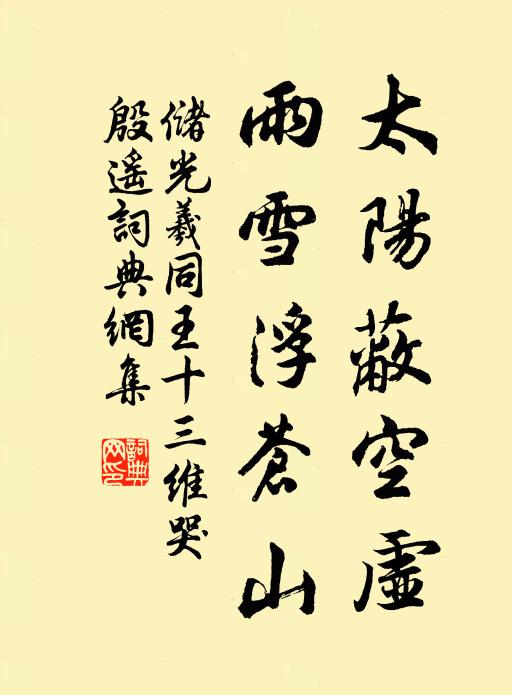 太陽蔽空虛
雨雪浮蒼山
儲光羲同王十三維哭
殷遥詞典網集
詞典网印